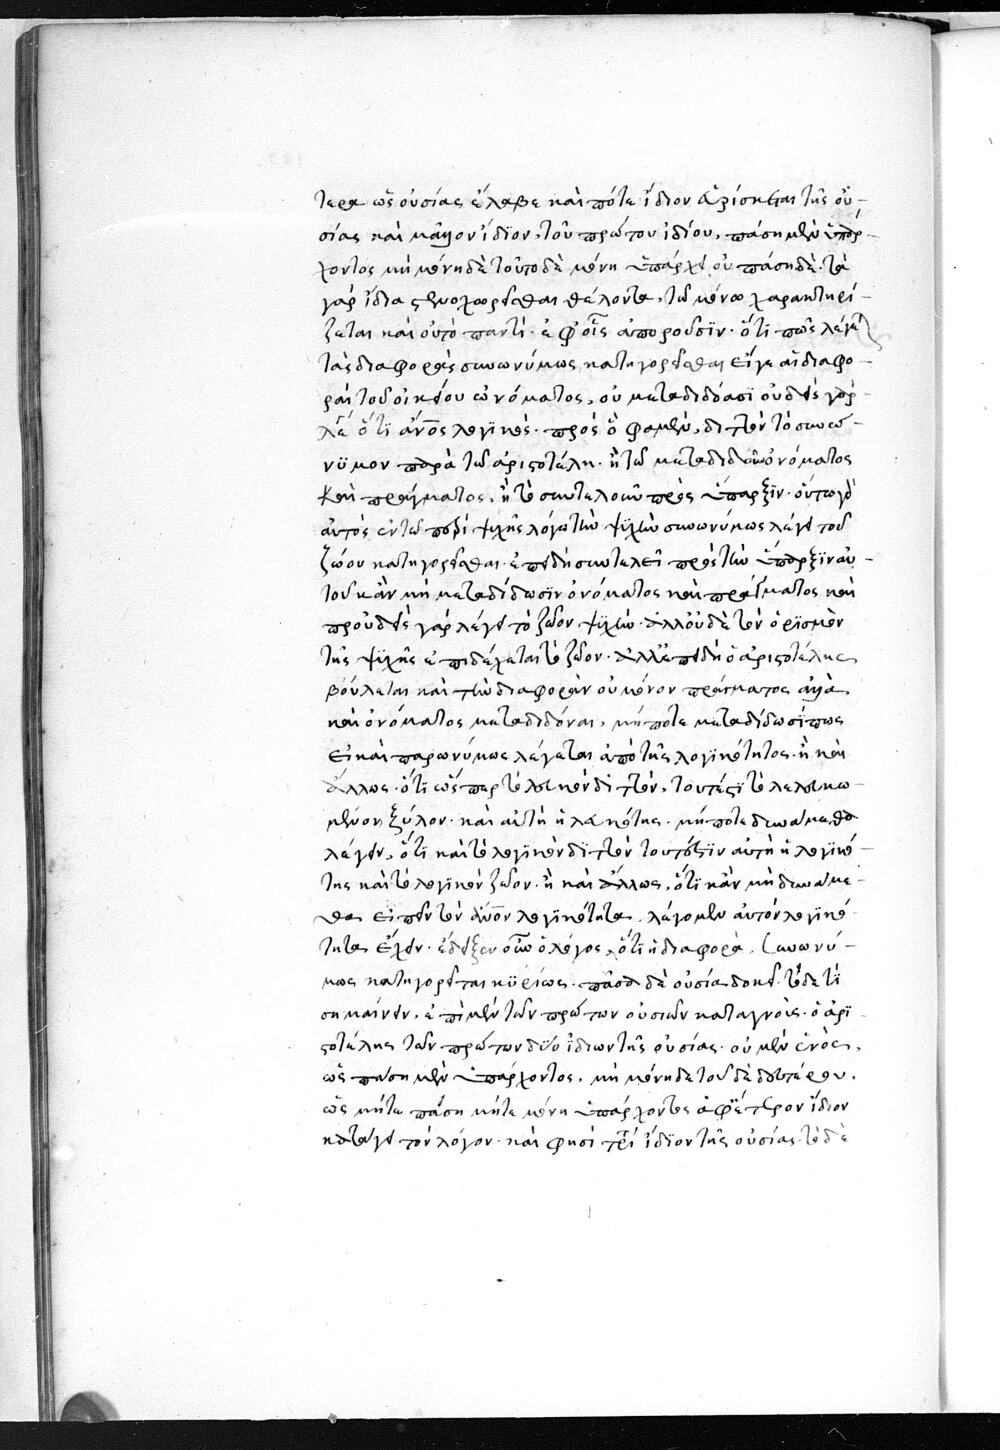 τερα ὡς οὐσίας ἔλαβε καὶ πότε ἴδιον εὑρίσκεται τῆς οὐ-
σίας καὶ μᾶλλον ἴδϊον, τοῦ πρώτου ἰδίου, πάση μὲν ὑπάρ-
χοντος μὴ μόνη δὲ τοῦτο δὲ μόνη ὑπάρχει οὐ πάση δὲ· τὰ
γὰρ ἴδια θέλοντα, τῶ μόνω χαρακτηρί-
ζεται καὶ οὐ τὸ παντί· ἐφ' οἷς ἀποροῦσϊν· ὅτϊ πῶς λέγει
τὰς διαφορὰς συνωνύμως κατηγορεῖσθαι εἴγε αἱ διαφο-
ραὶ τοῦ οἰκείου ὠνόματος, οὐ μεταδιδόασϊ οὐδεὶς γὰρ
λέγει ὅτϊ ἄνος λογϊκός· πρὸς ὅ φαμὲν, διττὸν τὸ συνώ-
νϋμον παρὰ τῶ ἀριστοτέλη· ἢ τῶ μεταδιδὸν ὀνόματος
καὶ πράγματος, ἢ τὸ συντελοῦν πρὸς ὕπαρξϊν· οὕτω γὰρ
αὐτὸς ἐν τῶ περὶ ψυχῆς λόγω τὴν ψϋχὴν συνωνύμως λέγει τοῦ
ζώου κατηγορεῖσθαι· ἐπειδὴ συντελεῖ πρὸς τὴν ὕπαρξϊν αὐ-
τοῦ κἂν μὴ μεταδίδωσϊν ὀνόματος καὶ πράγματος καὶ
προ οὐδεὶς γὰρ λέγει τὸ ζῶον ψϋχὴν· ἀλλ' οὐδὲ τὸν ὁρϊσμὸν
τῆς ψϋχῆς ἐπιδέχεται τὸ ζῶον· ἀλλ' ἐπειδὴ ὁ ἀριστοτέλης
βούλεται καὶ τὴν διαφορὰν οὐ μόνον πράγματος ἀλλὰ
καὶ ὀνόματος μεταδιδόναι, μήποτε μεταδίδωσί πως
εἰ καὶ παρωνύμως λέγεται ἀπὸ τῆς λογϊκότητος· ἢ καὶ
ἄλλως· ὅτϊ ὥσπερ τὸ λευκὸν διττὸν, τουτέστϊ τὸ λελευκω-
μένον ξύλον· καὶ αὐτὴ ἡ λευκότης· μήποτε δυνάμεθα
λέγειν, ὅτϊ καὶ τὸ λογϊκὸν διττὸν τουτέστϊν αὐτὴ ἡ λογϊκό-
της καὶ τὸ λογϊκὸν ζῶον· ἢ καὶ ἄλλως, ὅτϊ κἂν μὴ δυνάμε-
θα εἰπεῖν τὸν ἄνον λογϊκότητα, λέγομεν αὐτὸν λογϊκό-
τητα ἔχειν· ἔδειξεν οὖν ὁ λόγος, ὅτϊ ἡ διαφορὰ, συνωνύ-
μως κατηγορεῖται κϋρίως· πᾶσα δὲ οὐσία δοκεῖ τόδε τϊ
σημαίνειν, ἐπὶ μὲν τῶν πρώτων οὐσιῶν καταγνοὺς ὁ ἀρϊ-
στοτέλης τῶν πρώτων δύο ἰδίων τῆς οὐσίας· οὐ μὲν ἑνὸς,
ὡς πάση μὲν ὑπάρχοντος, μὴ μόνη δὲ τοῦ δὲ δευτέρου,
ὡς μήτε πάση μήτε μόνη ὑπάρχοντος ἐφ' ἕτερον ἴδιον
μετάγει τὸν λόγον· καὶ φησὶ τρί ἴδϊον τῆς οὐσίας· τὸ δὲ